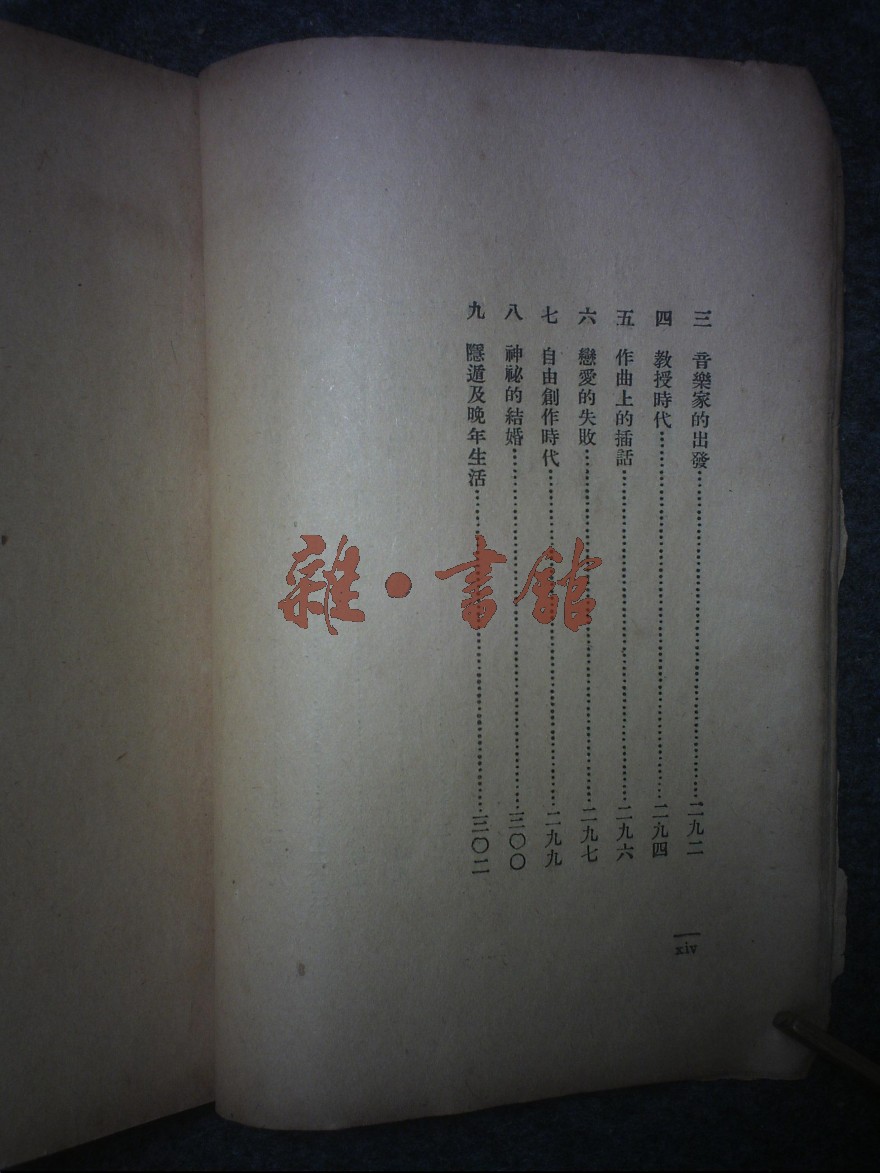 三　音樂家的出發……二九二
四　教授時代……二九四
五　作曲上的插話……二九六
六　戀愛的失敗……二九七
七　自由創作時代……二九九
八　神祕的結婚……三〇〇
九　隱遁及晚年生活……三〇二
xiv
雜·書館